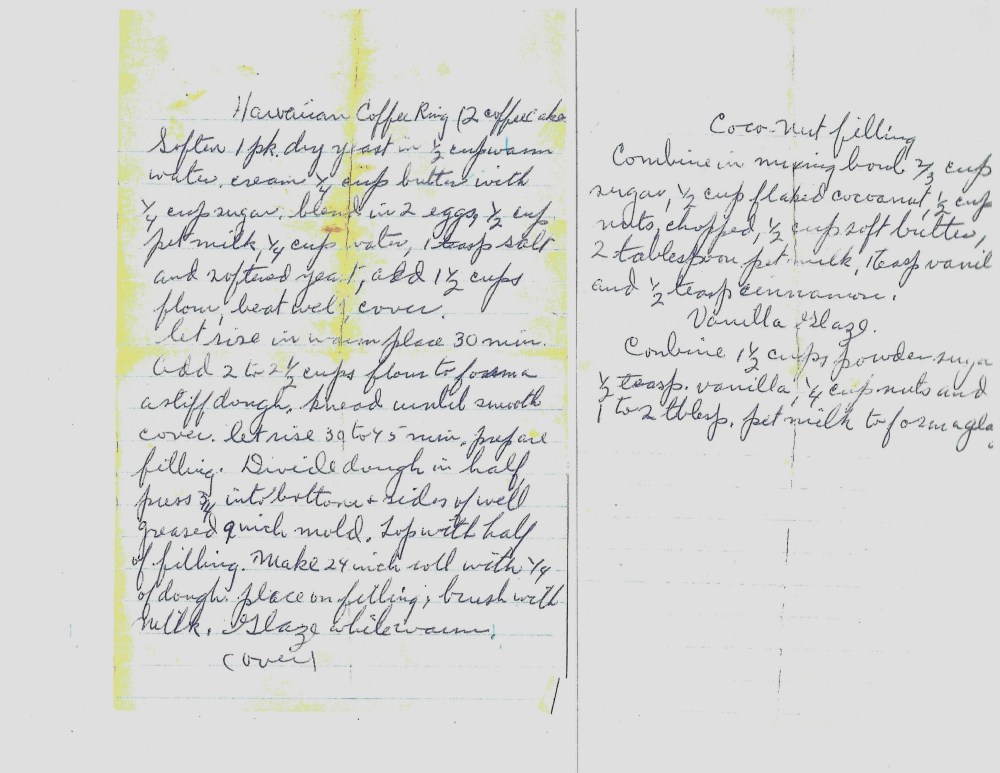 Hawaiian Coffee Ring (2 coffee cake
Soften 1 pk. dry yeast in ½ cup warm
water. cream ¼ cup butter with
¼ cup sugar. blend in 2 eggs, ½ cup
pet milk, ¼ cup water, 1 teasp salt
and softened yeast, add 1½ cups
flour, beat well, cover.
let rise in warm place 30 min.
add 2 to 2½ cups flour to form a
a stiff dough. knead until smooth
cover. let rise 30 to 45 min. prepare
filling. Divide dough in half,
press ¾ into bottom + sides of well
greased 9 inch mold. top with half
of filling. Make 24 inch roll with ¼
of dough. place on filling; brush with
milk. Glaze while warm.
(over)
Coco-Nut filling
Combine in mixing bowl ⅔ cup
sugar, ½ cup flaked cocoanut, ½ cup
nuts, chopped, ½ cup soft butter,
2 tablespoon pet milk, 1 teasp vanil
and ½ teasp cinnamon.
Vanilla Glaze.
Conbine 1½ cups powder sugar
½ teasp. vanilla, ¼ cup nuts and
1 to 2 tblesp. pet milk to form a glaz